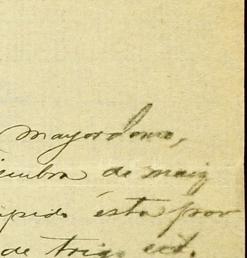 Mayordomo,
iembra de maiz
apido ésta por
de trigo ect.